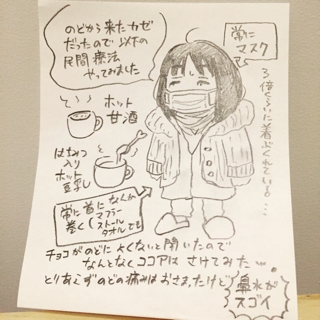 のどから来たカゼ
だったので以下の
民間療法
やってみました
常に
マスク
3倍くらいに着ぶくれている…
ホット
甘酒
はちみつ
入り
ホット
豆乳
常に首になんか
巻く(マフラー
ストール
タオルでも
チョコがのどによくないと聞いたので
なんとなくココアはさけてみた…
とりあえずのどの痛みはおさまったけど
鼻水が
スゴイ